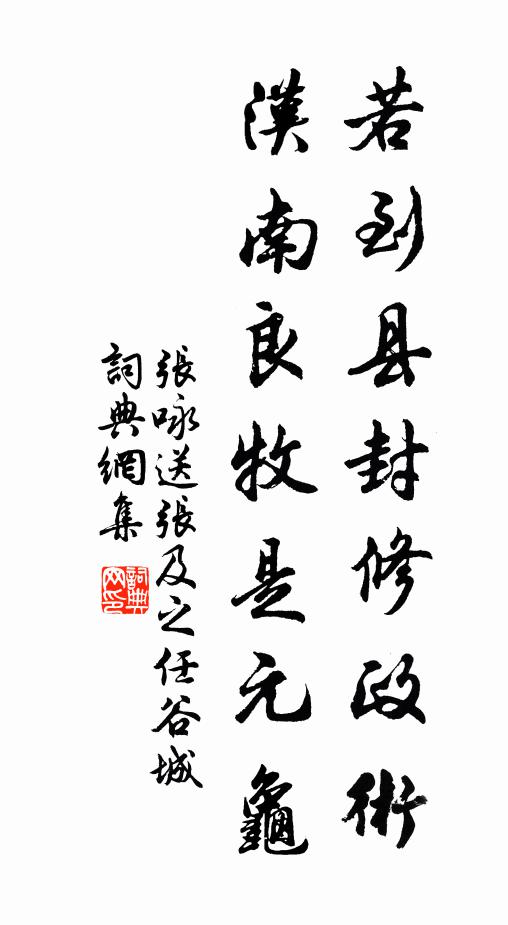 若到县封修政術
漢南良牧是元龜
張咏送張及之任谷城
詞典網集
詞典
网印